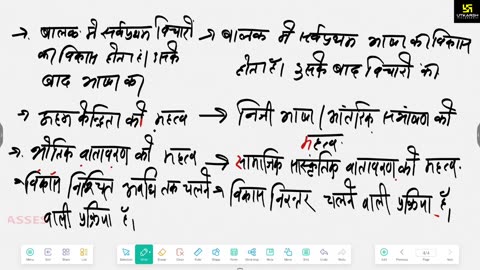 UTKARSH
→ बालक में सर्वप्रथम विचारों
का विकास होता है। इसके
बाद भाषा का
→ बालक में सर्वप्रथम भाषा का विकास
होता है। उसके बाद विचारों का
→ अहम केन्द्रिता को महत्व → निजी भाषा/आंतरिक संभाषण को
महत्व
→ भौतिक वातावरण को महत्व → सामाजिक सांस्कृतिक वातावरण को महत्व.
→ विकास निश्चित अवधि तक चलने
वाली प्रक्रिया है।
→ विकास निरन्तर चलने वाली प्रक्रिया है।
ASSES